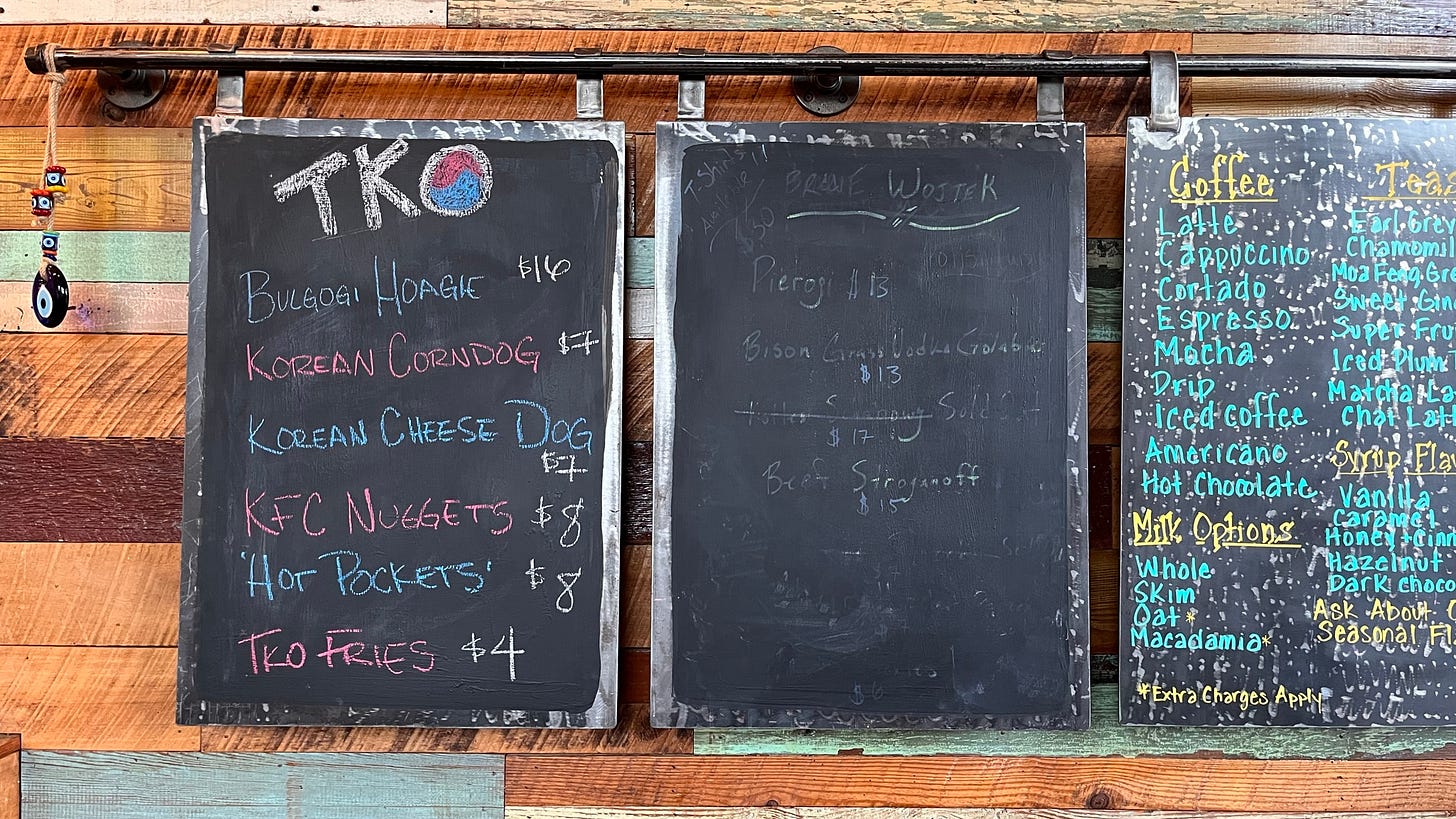 TKO
BULGOGI HOAGIE $16
KOREAN CORNDOG $7
KOREAN CHEESE DOG
$7
KFC NUGGETS $8
'HOT POCKETS' $8
TKO FRIES $4
WOJTEK
$50
Pierogi $13
Bison Grass Vodka
$13
Sold
$17
Beef Stroganoff
$15
$6
Coffee
Latte
Cappuccino
Cortado
Espresso
Mocha
Drip
Iced Coffee
Americano
Hot Chocolate
Milk Options
Whole
Skim
Oat*
Macadamia*
*Extra Charges Apply
Teas
Earl Grey
Chamomi
Moa Feng Gr
Sweet Gin
Super Fru
Iced Plum
Matcha La
Chai Lat
Syrup Fla
Vanilla
Caramel
Honey+Cinn
Hazelnut
Dark choco
Ask About
Seasonal Fl